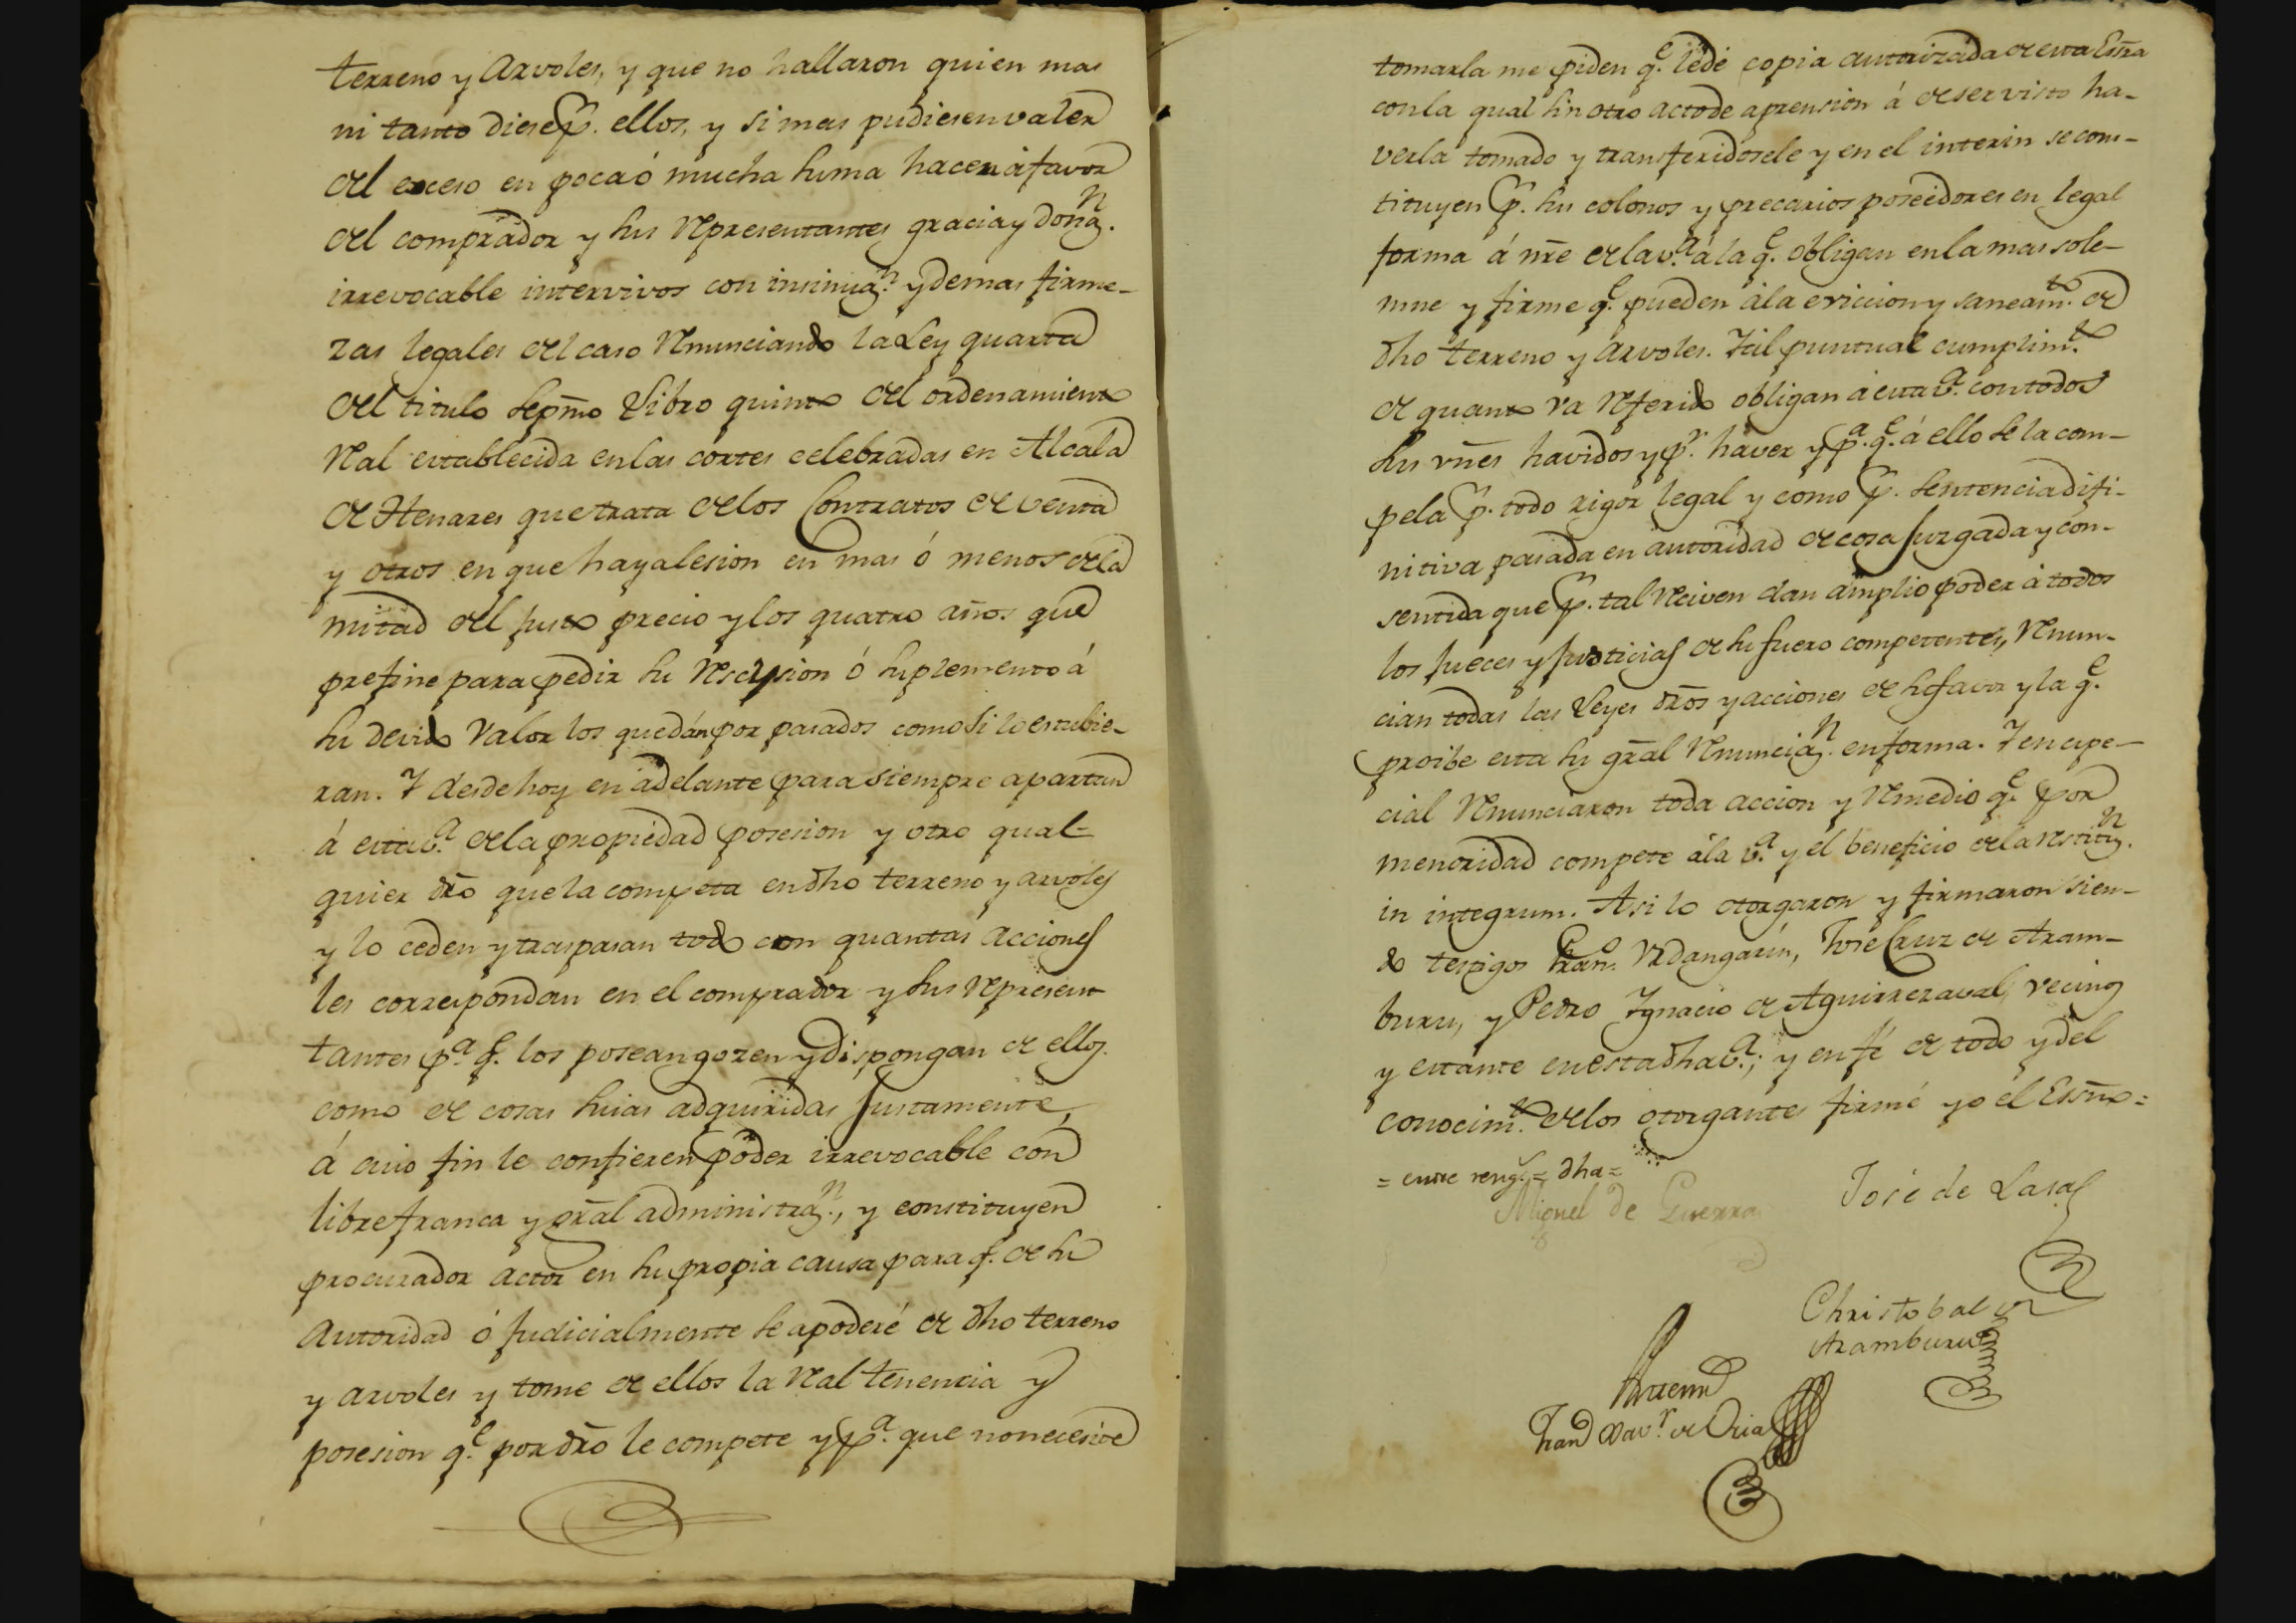 terreno y Arvoles, y que no hallaron quien mas
ni tanto diese pr. ellos, y si mas pudiesen valer
del exceso en poca ó mucha suma hacen á favor
del comprador y sus Representantes gracia y donaz.n
irrevocable intervivos con insinuaz.n y demas firme-
zas legales del caso Renunciando la Ley quarta
del titulo sepmo Libro quinto del ordenamiento
Real establecida en las cortes celebradas en Alcala
de Henares que trata de los Contratos de venta
y otros en que haya lesion en mas ó menos de la
mitad del justo precio y los quatro años que
prefine para pedir su Rescision ó suplemento á
su devido Valor los que dán por pasados como si lo estubie-
ran. Y desde hoy en adelante para siempre apartan
á esta v.a de la propiedad posesion y otro qual-
quier dro que la competa en dho terreno y arvoles
y lo ceden y traspasan todo con quantas acciones
les correspondan en el comprador y sus represen
tantes p.a q.e los posean gozen y dispongan de ellos
como de cosas suias adquiridas justamente,
á cuio fin le confieren poder irrevocable con
libre franca y gral administraz.n, y constituyen
procurador actor en su propia causa para q.e de su
Autoridad ó judicialmente se apoderé de dho terreno
y arvoles y tome de ellos la Real tenencia y
posesion q.e por dro le compete y p.a que no necesite
tomarla me piden q.e le dé copia autorizada de esta Esra
con la qual sin otro acto de aprension á de ser visto ha-
verla tomado y transferidosele y en el interin se cons-
tituyen pr. sus colonos y precarios poseedores en legal
forma á nre de la v.a á la q.e obligan en la mas sole-
mne y firme q.e pueden á la eviccion y saneam.to de
dho terreno y arvoles. Y al puntual cumplim.to
de quanto va referido obligan á esta v.a con todos
sus vnes havidos y p.r haver y p.a q.e á ello se la com-
pela pr. todo rigor legal y como pr. sentencia difi-
nitiva pasada en autoridad de cosa Juzgada y con-
sentida que pr. tal Reciven dan amplio poder á todos
los jueces y justicias de su fuero competentes, Renun-
cian todas las Leyes dros y acciones de su favor y la q.e
proibe esta su gral Renunciaz.n en forma. Y en espe-
cial Renunciaron toda accion y Remedio q.e por
menoridad compete á la v.a y el beneficio de la restituz.n
in integrum. Asi lo otorgaron y firmaron sien-
do testigos Fran.co Vrdangarin, José Cruz de Aram-
buru, y Pedro Ygnacio de Aguirrezaval, vecinos
y estante en esta dha v.a; y en fé de todo y del
conocim.to de los otorgantes firmé yo el Esnno=
= entre reng.s = dha =
Miguel de Guerra
José de Lasa
Christobal de
Aramburu
Antemi
Fran.co Xav.r de Oria